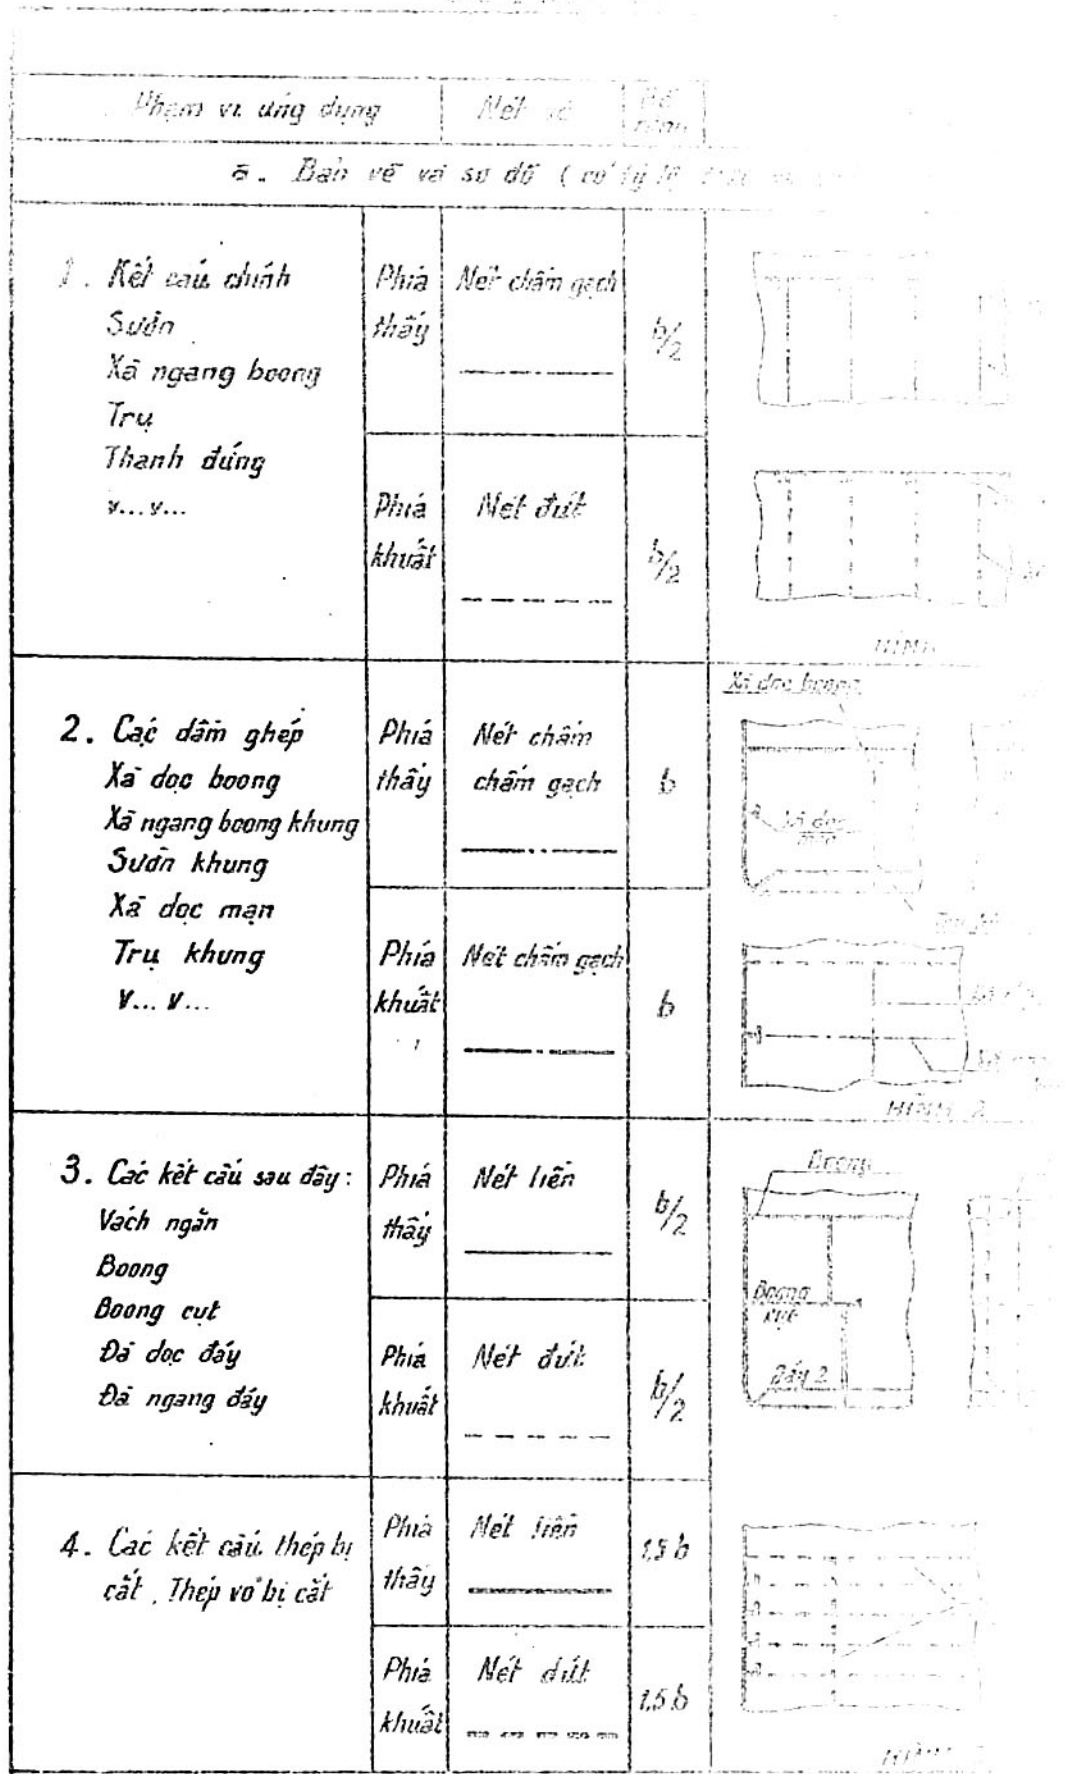 Phạm vi ứng dụng
Nét vẽ
Bề
rộng
a. Bản vẽ và sơ đồ ( có tỷ lệ
1. Kết cấu chính
Sườn
Xà ngang boong
Trụ
Thanh đứng
v...v...
Phía
thấy
Nét chấm gạch
b/2
Phía
khuất
Nét đứt
b/2
HÌNH
2. Các dầm ghép
Xà dọc boong
Xà ngang boong khung
Sườn khung
Xà dọc mạn
Trụ khung
V... V...
Phía
thấy
Nét chấm
chấm gạch
b
Phía
khuất
Nét chấm gạch
b
Xà dọc boong
Xà dọc
mạn
HÌNH 2
3. Các kết cấu sau đây:
Vách ngăn
Boong
Boong cụt
Đà dọc đáy
Đà ngang đáy
Phía
thấy
Nét liền
b/2
Phía
khuất
Nét đứt
b/2
Boong
Boong
cụt
Đáy 2
4. Các kết cấu thép bị
cắt, Thép vỏ bị cắt
Phía
thấy
Nét liền
1,5 b
Phía
khuất
Nét đứt
1,5 b
HÌNH